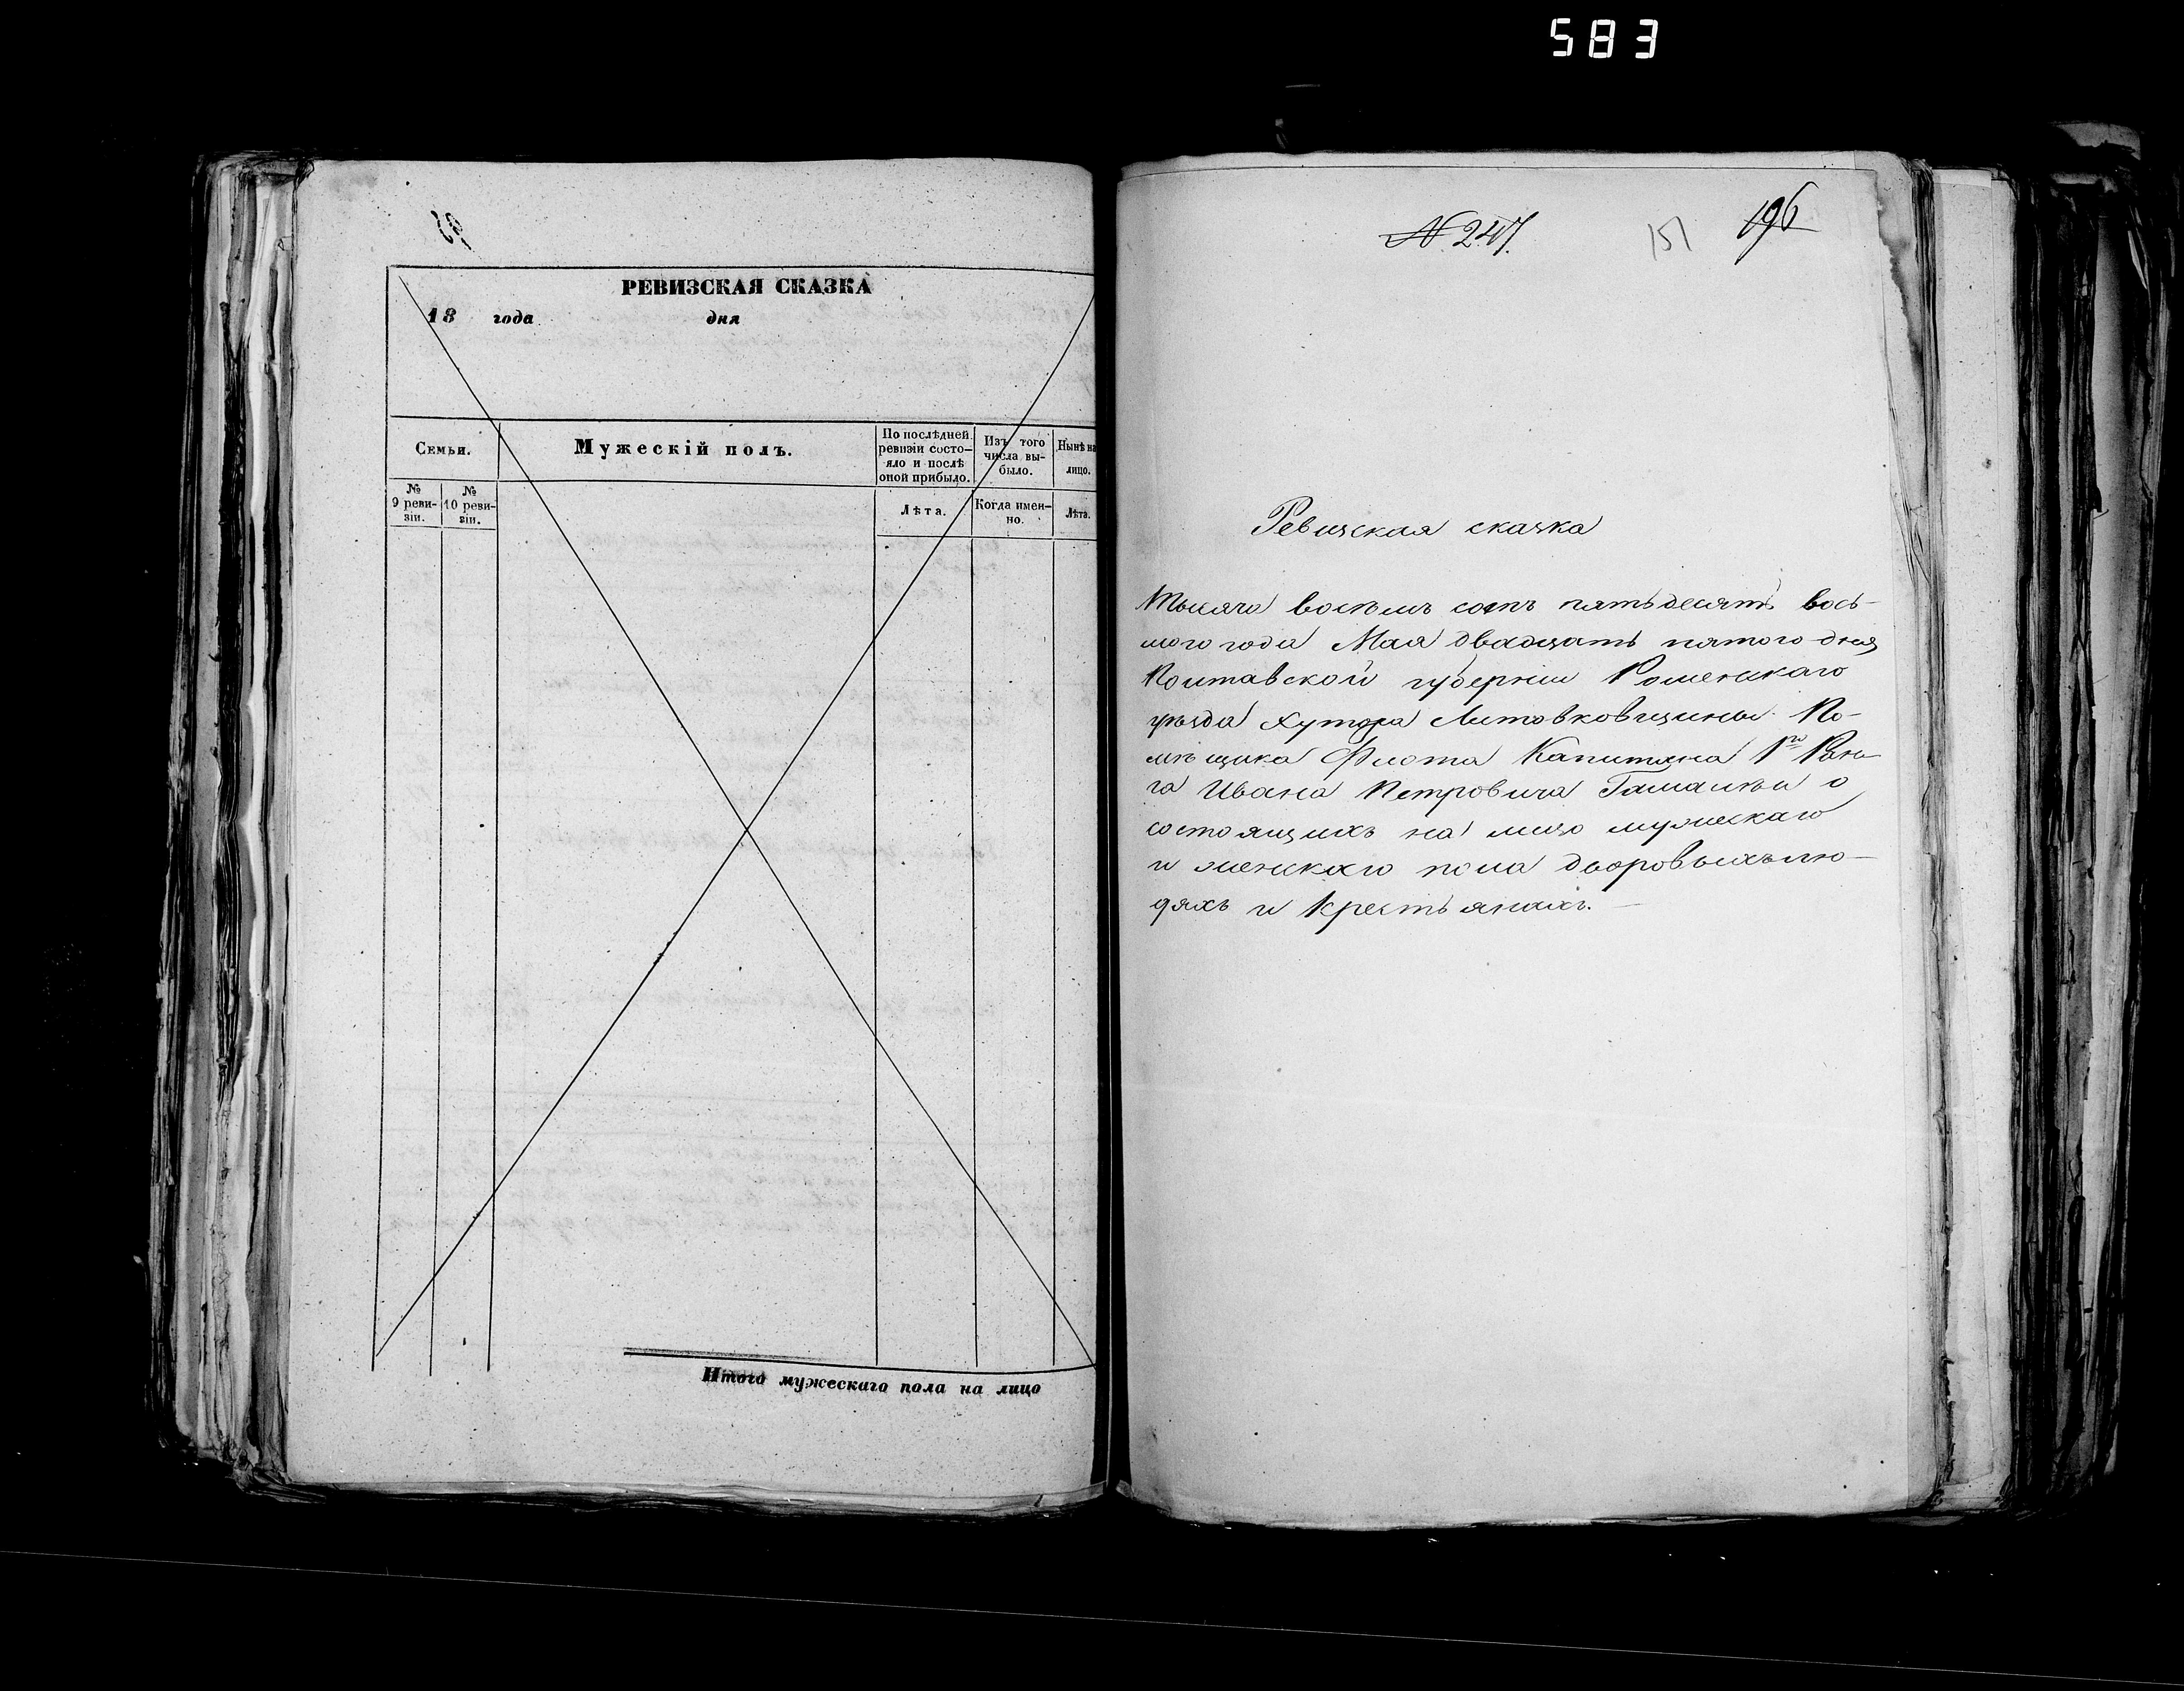 583
РЕВИЗСКАЯ СКАЗКА
18 года дня
Семьи.
Мужескій полъ.
По послѣдней ревизіи состо-
яло и послѣ
оной прибыло.
Изъ того
числа вы-
было.
Нынѣ на
лицо.
№
9 реви-
зіи.
№
10 реви-
зіи.
Лѣта.
Когда имен-
но.
Лѣта.
Итого мужескаго пола на лицо
№ 247.
151
196
Ревизская сказка
Тысяча восемъ сотъ пятьдесятъ вось-
мого года Мая двадцать пятого дня
Полтавской губерніи Роменскаго
уѣзда хутора Литовковщины По-
мѣщика Флота Капитана 1го Ран-
га Ивана Петровича о
состоящихъ на лицо мужескаго
и женскаго пола дворовыхъ лю-
дяхъ и крестьянахъ.